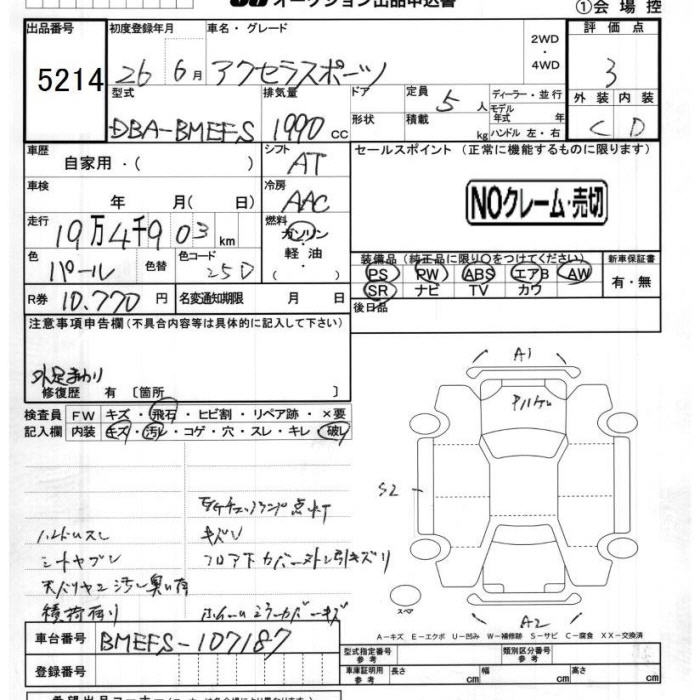 オークション出品申込書
①会場控
出品番号 初度登録年月 車名・グレード 2WD・4WD 評価点
5214 26 6月 アクセラスポーツ 3
型式 排気量 ドア 定員 5人 ディーラー・並行 外装 内装
DBA-BMEFS 1990cc 形状 積載 kg モデル年式 年 ハンドル 左・右 C D
車歴 自家用・( ) シフト AT セールスポイント (正常に機能するものに限ります)
車検 年 月( 日) 冷房 AAC
NOクレーム・売切
走行 19万4千903km 燃料 ガソリン・軽油・( )
色 パール 色替 色コード 25D
装備品 (純正品に限り○をつけてください) 新車保証書
PS PW ABS エアB AW 有・無
SR ナビ TV カワ
R券 10,770円 名変通知期限 月 日
後日品
注意事項申告欄(不具合内容等は具体的に記入して下さい)
外足まわり
修復歴 有〔箇所 〕
検査員 FW キズ・飛石・ヒビ割・リペア跡・×要
記入欄 内装 キズ・汚レ・コゲ・穴・スレ・キレ・破レ
A1
S2
A2
スペア
点灯
ハンドルスレ キズ
シートヤブレ フロア下カバー
A-キズ E-エクボ U-凹み W-補修跡 S-サビ C-腐食 XX-交換済
車台番号 BMEFS-107187
型式指定番号 参考 類別区分番号 参考
登録番号 車庫証明用 参考 長さ cm 幅 cm 高さ cm